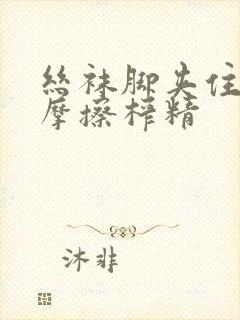 丝袜脚夹住
摩擦榨精
沐非